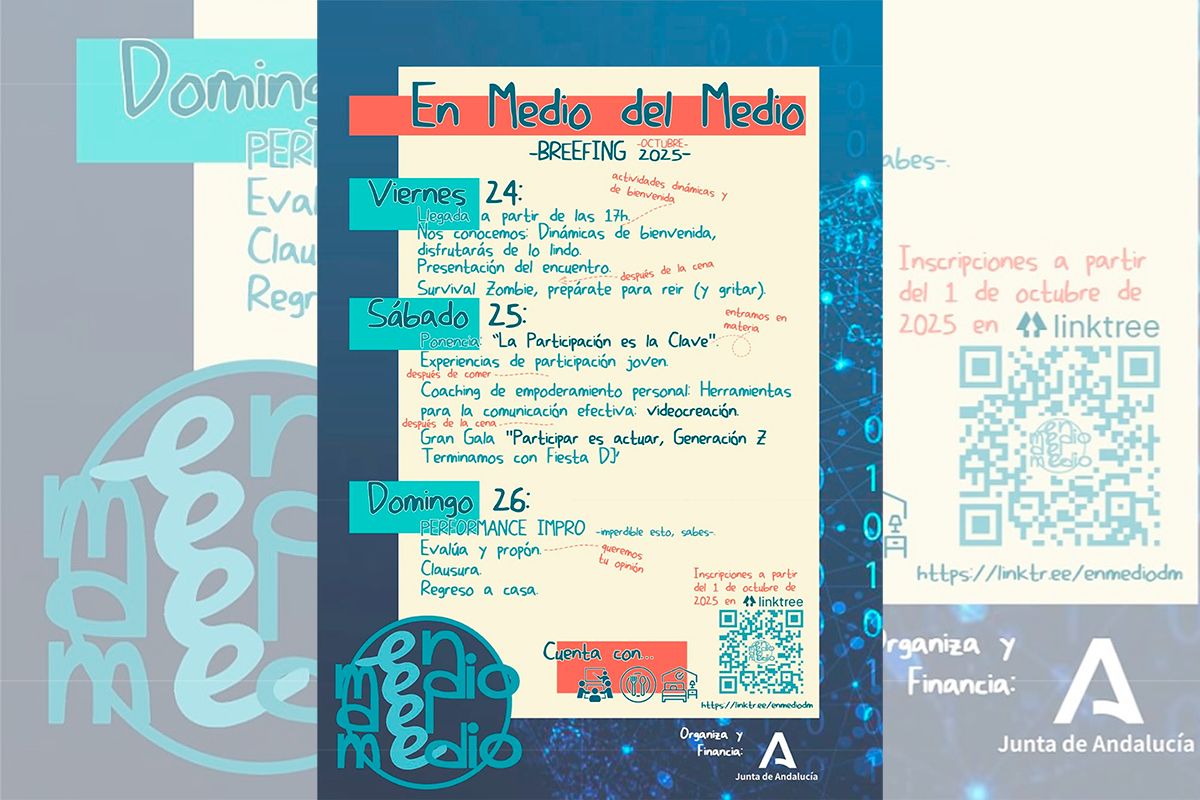 En Medio del Medio
-BREEFING -OCTUBRE- 2025-
Viernes 24:
actividades dinámicas y
de bienvenida
Llegada a partir de las 17h.
Nos conocemos: Dinámicas de bienvenida,
disfrutarás de lo lindo.
Presentación del encuentro.
después de la cena
Survival Zombie, prepárate para reir (y gritar).
Sábado 25:
entramos en
materia
Ponencia: "La Participación es la Clave".
Experiencias de participación joven.
después de comer
Coaching de empoderamiento personal: Herramientas
para la comunicación efectiva: videocreación.
después de la cena
Gran Gala "Participar es actuar, Generación Z
Terminamos con Fiesta DJ'
Domingo 26:
PERFORMANCE IMPRO -imperdible esto, sabes-.
Evalúa y propón.
queremos
tu opinión
Clausura.
Regreso a casa.
Inscripciones a partir
del 1 de octubre de
2025 en linktree
https://linktr.ee/enmediodm
Cuenta con...
en
medio
del
medio
Organiza y
Financia:
Junta de Andalucía
Doming
PER
Eval
Clau
Regr
en
m
d
me
abes-.
Inscripciones a partir
del 1 de octubre de
2025 en linktree
en
medio
del
medio
https://linktr.ee/enmediodm
rganiza y
Financia:
Junta de Andalucía